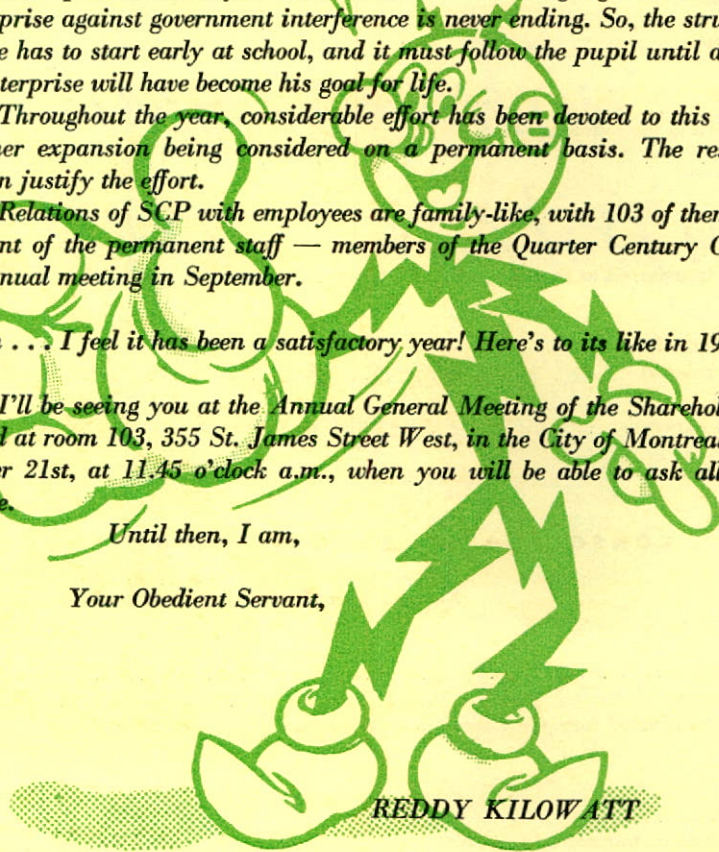 prise against government interference is never ending. So, the stru
e has to start early at school, and it must follow the pupil until a
terprise will have become his goal for life.
Throughout the year, considerable effort has been devoted to this
er expansion being considered on a permanent basis. The re
n justify the effort.
Relations of SCP with employees are family-like, with 103 of them
nt of the permanent staff — members of the Quarter Century C
nual meeting in September.
. . . I feel it has been a satisfactory year! Here's to its like in 19
I'll be seeing you at the Annual General Meeting of the Sharehol
d at room 103, 355 St. James Street West, in the City of Montreal
er 21st, at 11.45 o'clock a.m., when you will be able to ask all
e.
Until then, I am,
Your Obedient Servant,
REDDY KILOWATT